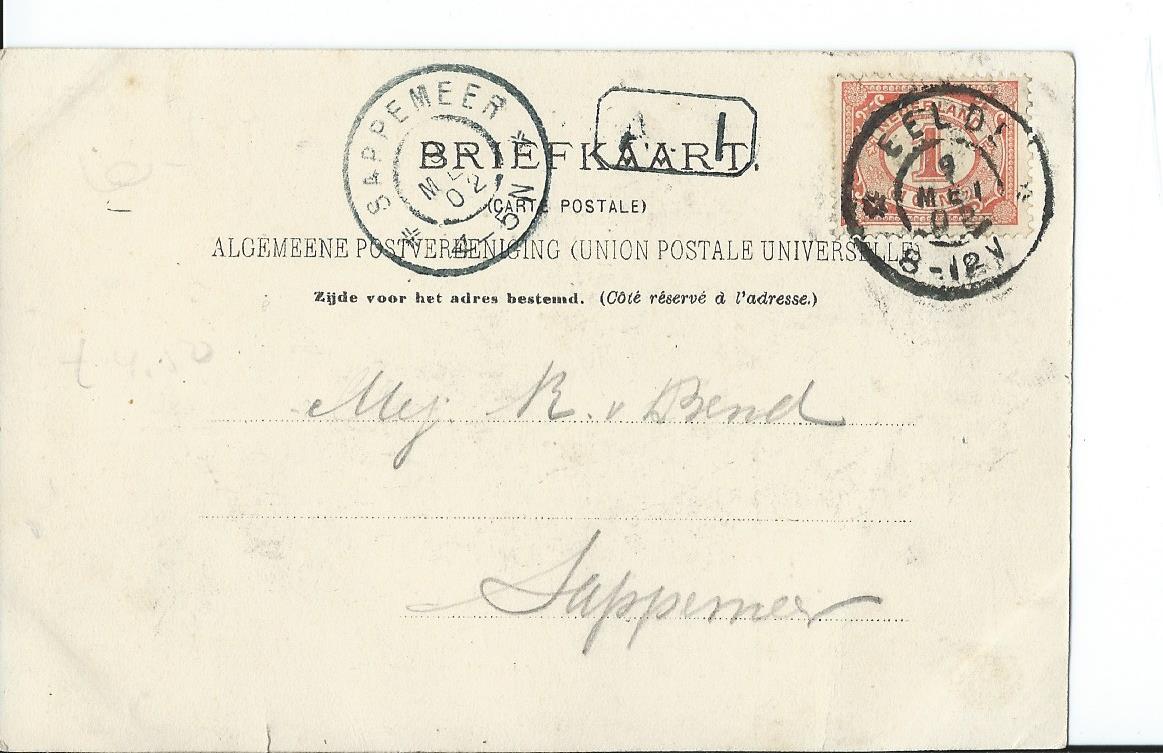 SAPPEMEER
MEI
02
4-5N
1
NEDERLAND
1
EELDE
9
MEI
02
8-12V
BRIEFKAART.
(CARTE POSTALE)
ALGEMEENE POSTVEREENIGING (UNION POSTALE UNIVERSELLE)
Zijde voor het adres bestemd. (Côté réservé à l'adresse.)
Mej. R. v Bend
Sappemeer